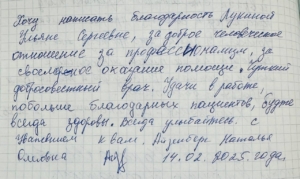 Хочу написать благодарность Лукиной
Ульяне Сергеевне, за доброе человеческое
отношение за профессионализм, за
своевременное оказание помощи,
добросовестный врач. Удачи в работе,
побольше благодарных пациентов, будьте
всегда здоровы. Всегда улыбайтесь. С
Уважением к вам. Наталья
Олеговна 14.02.2025 года.